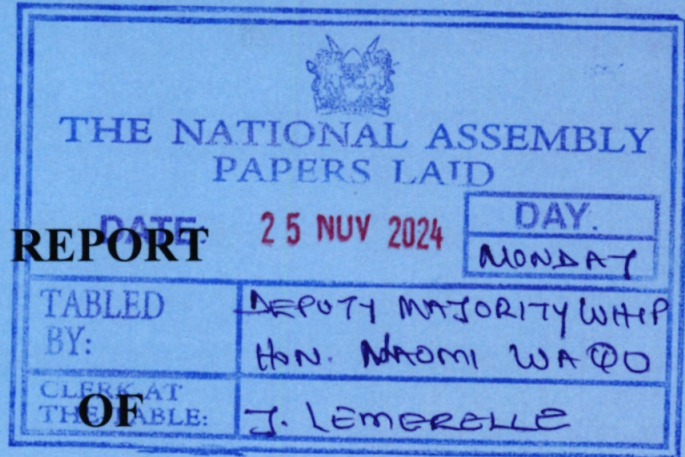 THE NATIONAL ASSEMBLY
PAPERS LAID
DATE: 25 NUV 2024
DAY.
MONDAY
REPORT
TABLED BY:
DEPUTY MAJORITY WHIP
HON. NAOMI WAQO
CLERK AT
THE TABLE:
OF
J. LEMERELLE